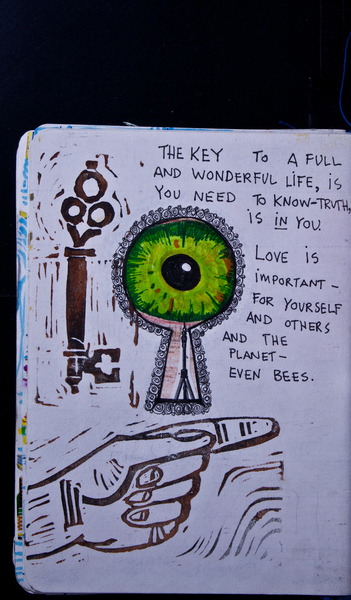 THE KEY TO A FULL
AND WONDERFUL LIFE, IS
YOU NEED TO KNOW-TRUTH,
IS IN YOU
LOVE IS
IMPORTANT -
FOR YOURSELF
AND OTHERS
AND THE
PLANET -
EVEN BEES.